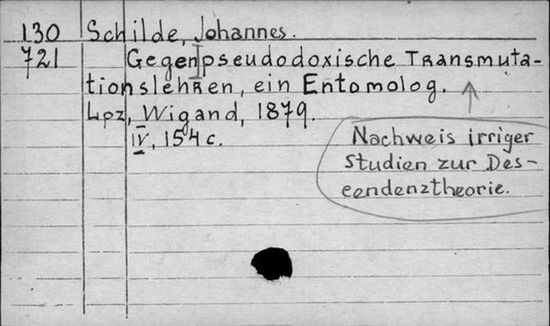 130 Schilde, Johannes.
721 Gegenpseudodoxische Transmuta-
tionslehren, ein Entomolog.
Lpz, Wigand, 1879.
IV, 154 c.
Nachweis irriger
Studien zur Des-
cendenztheorie.